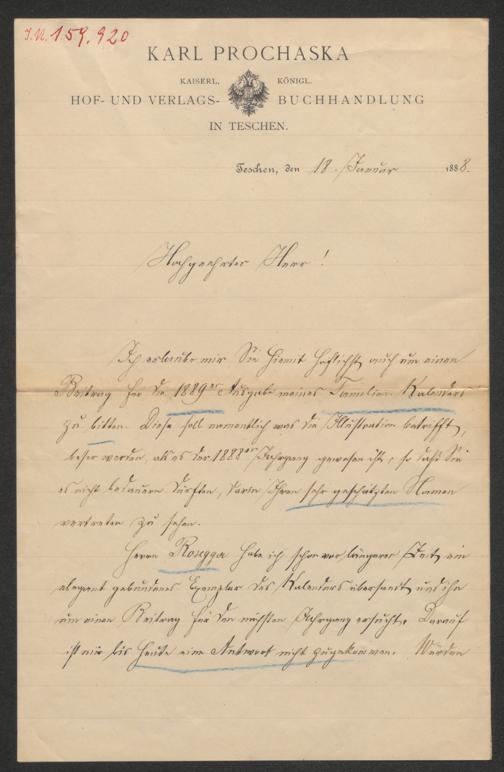 J.N. 159.920
KARL PROCHASKA
KAISERL. KÖNIGL.
HOF- UND VERLAGS- BUCHHANDLUNG
IN TESCHEN.
Teschen, den 18. Januar 1888.
Hochgeehrter Herr!
Ich erlaube mir Sie hiemit höflichst auch um einen
Beitrag für die 1889er Ausgabe meines Familien-Kalenders
zu bitten. Diese soll namentlich was die Illustration betrifft,
besser werden, als es der 1888er Jahrgang gewesen ist, so daß Sie
es nicht bedauern dürften, darin Ihren sehr geschätzten Namen
vertreten zu sehen.
Herrn Rosegger habe ich schon vor längerer Zeit ein
elegant gebundenes Exemplar des Kalenders übersandt und ihn
um einen Beitrag für den nächsten Jahrgang ersucht. Darauf
ist mir bis heute eine Antwort nicht zugekommen. Würden